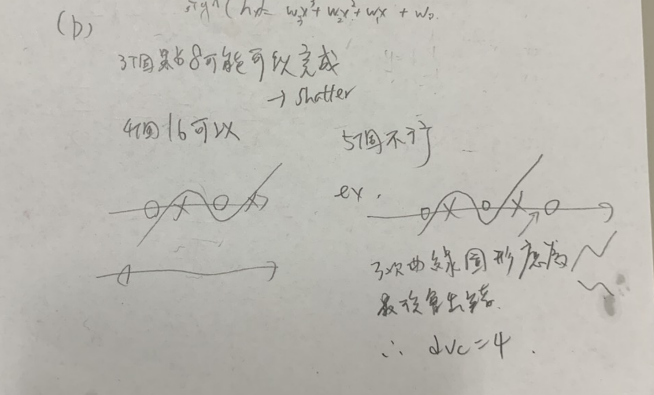 sign(h(x)= w₃x³+w₂x²+w₁x+w₀
(b)
3個點8可能可以完成
→ shatter
4個16可以
5個不行
ex.
3次曲線圖形應為
最後會出錯
∴ dvc=4.